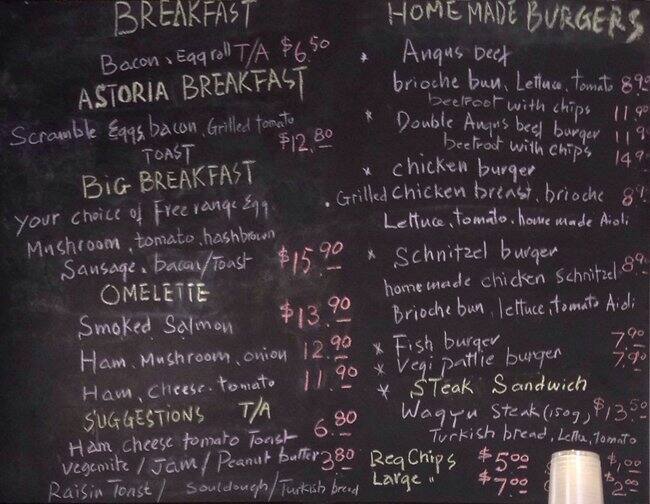 BREAKFAST
Bacon & Eggroll T/A $6.50
ASTORIA BREAKFAST
Scramble Eggs, bacon, Grilled tomato
TOAST $12.80
BIG BREAKFAST
your choice of Free range Egg
Mushroom, tomato, hashbrown
Sausage, bacon/Toast $15.90
OMELETTE
Smoked Salmon $13.90
Ham, Mushroom, onion 12.90
Ham, Cheese, tomato 11.90
SUGGESTIONS T/A
Ham Cheese tomato Toast 6.80
Vegemite / Jam / Peanut butter 3.80
Raisin Toast / Souldough / Turkish bread
HOME MADE BURGERS
* Angus beef
brioche bun, Lettuce, tomato 8.90
beetroot with chips 11.90
* Double Angus beef burger 11.9
beetroot with chips 14.9
* chicken burger
. Grilled chicken breast, brioche 8.9
Lettuce, tomato, home made Aioli
* Schnitzel burger
home made chicken schnitzel 8.9
Brioche bun, lettuce, tomato Aioli
* Fish burger 7.90
* Vegi pattie burger 7.90
* STeak Sandwich
Wagyu steak (150g) $13.50
Turkish bread, Lettu, tomato
Reg Chips $5.00 $1.00
Large " $7.00 $2.00